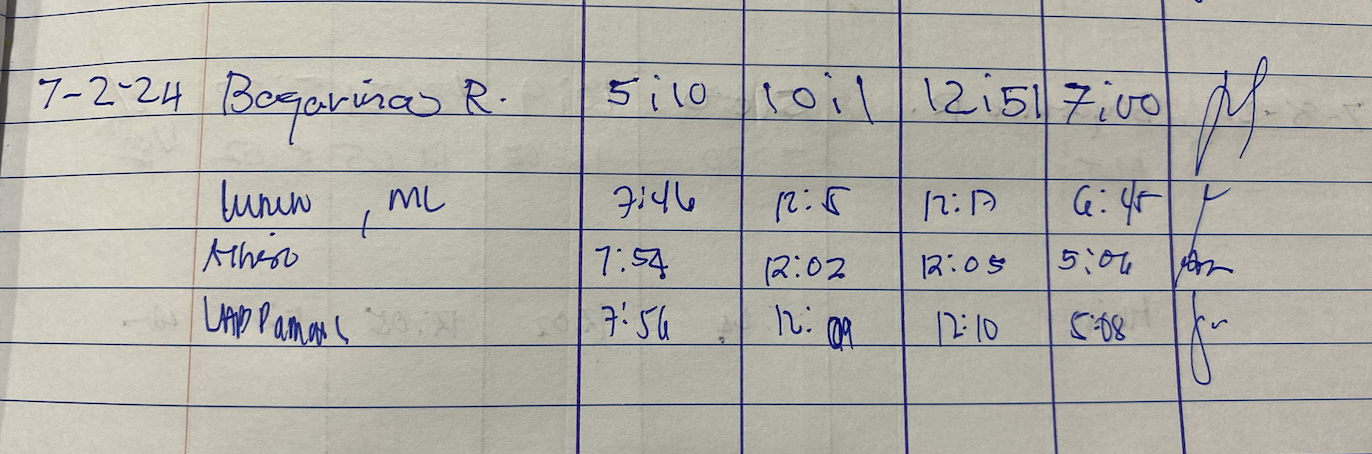 7-2-24 Bagarinao R. 5:10 10:1 12:51 7:00
, ML 7:46 12:5 12:17 6:45
7:54 12:02 12:05 5:06
7:56 12:09 12:10 5:08